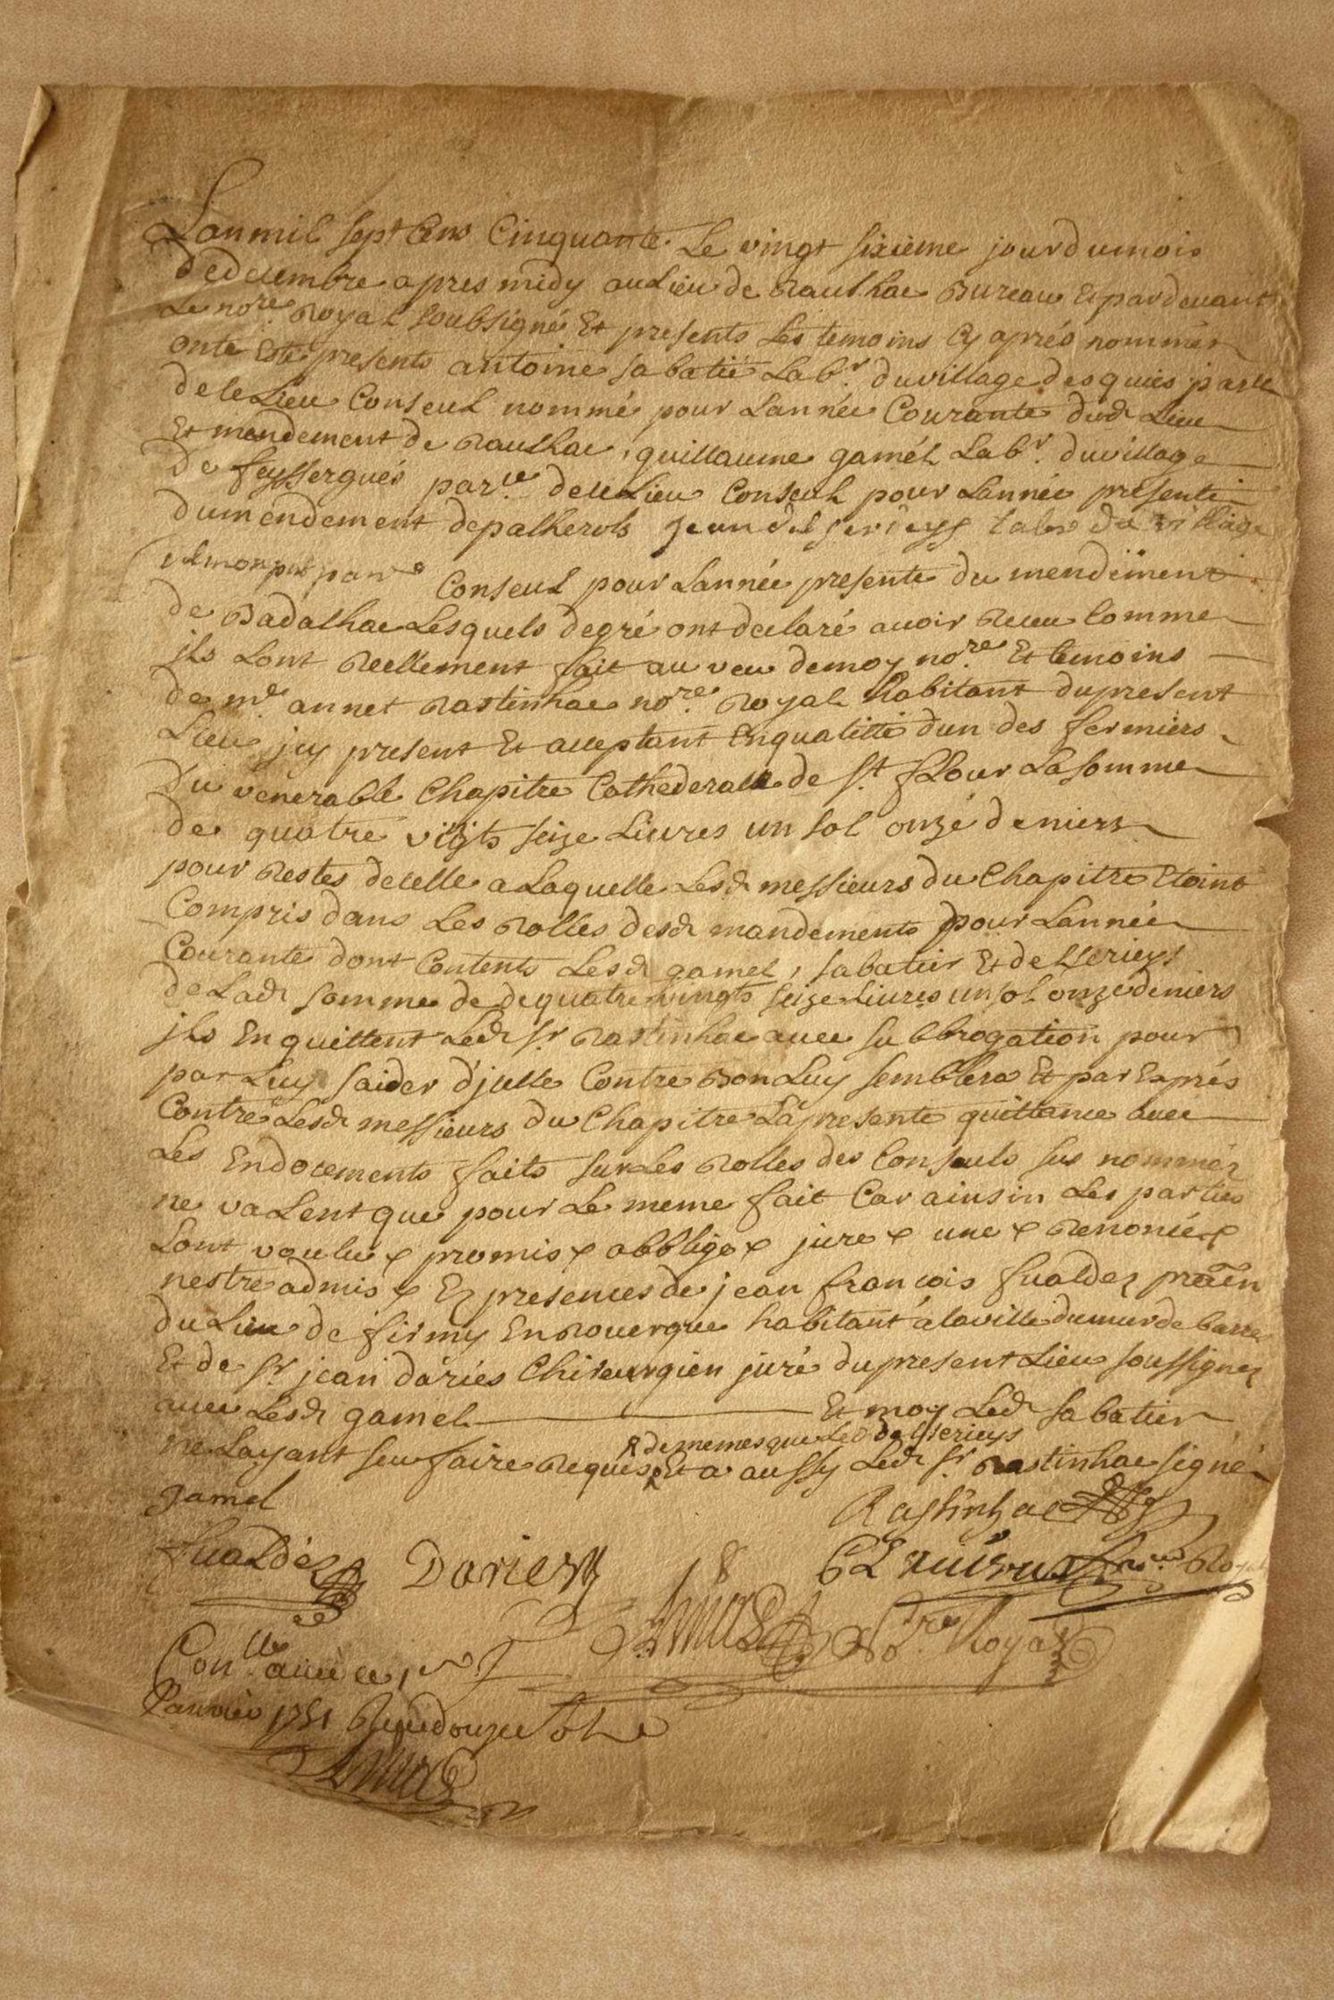 Lan mil sept cens Cinquante Le vingt sixieme jour du mois
de decembre apres midy au Lieu de Raulhac Bureau Et par devant
Le nore. Royal soubsigné Et presents Les temoins Cy aprés nommés
onte Esté presents antoine sabatié Labr. du village desquiés parsse
de ce Lieu Conseul nommé pour Lannée Courante dud Lieu
Et mandement de Raulhac, guillaume gamél Labr. du village
de feyssergués parsse. de ce Lieu Conseul pour Lannée presente
du mendement de palherols Jean delserieys labr du village
parsse Conseul pour Lannée presente du mendement
de Badalhac Lesquels de gré ont declaré avoir Receu Comme
jls Lont Reellement fait au veu de moy nore. Et temoins
de me. annet Rastinhac nore. Royal habitant du present
Lieu jcy present Et acceptant En qualitté dun des fermiers
du venerable Chapitre Cathederalle de St. flour La somme
de quatre vigts seize Livres un sol onze deniers
pour Restes de celle a Laquelle Lesd messieurs du Chapitre Etoint
Compris dans Les Rolles desd mandements pour Lannée
Courante dont Contents Lesd gamel, sabatier Et delserieys
de Lad somme de de quatre vingts seize Livres un sol onze deniers
jls En quittent Led Sr Rastinhac avec subbrogation pour
par Luy saider djcelle Contre Bon Luy semblera Et par Exprés
Contre Lesd messieurs du Chapitre La presente quittance avec
Les Endocements faits sur Les Rolles des Conseuls sus nommés
ne valent que pour Le meme fait Car ainsin Les parties
Lont voulu & promis & obblige & jure & une & Renoncé &
nestre admis & Ez presences de jean francois fualdez praen
du Lieu de firmy En Rouergue habitant á la ville du mur de barres
Et de Sr jean dariés Chirurgien juré du present Lieu soussignez
avec Lesd gamel Et moy Led sabatier
& de memes que Led delserieys
ne Layant seu faire Requis & Et a aussy Led Sr Rastinhac signé
gamel
Rastinhac
fualdéz Dariez Royal
Nore Royal
Conlle a
Janvier 1751 Receu douze sols